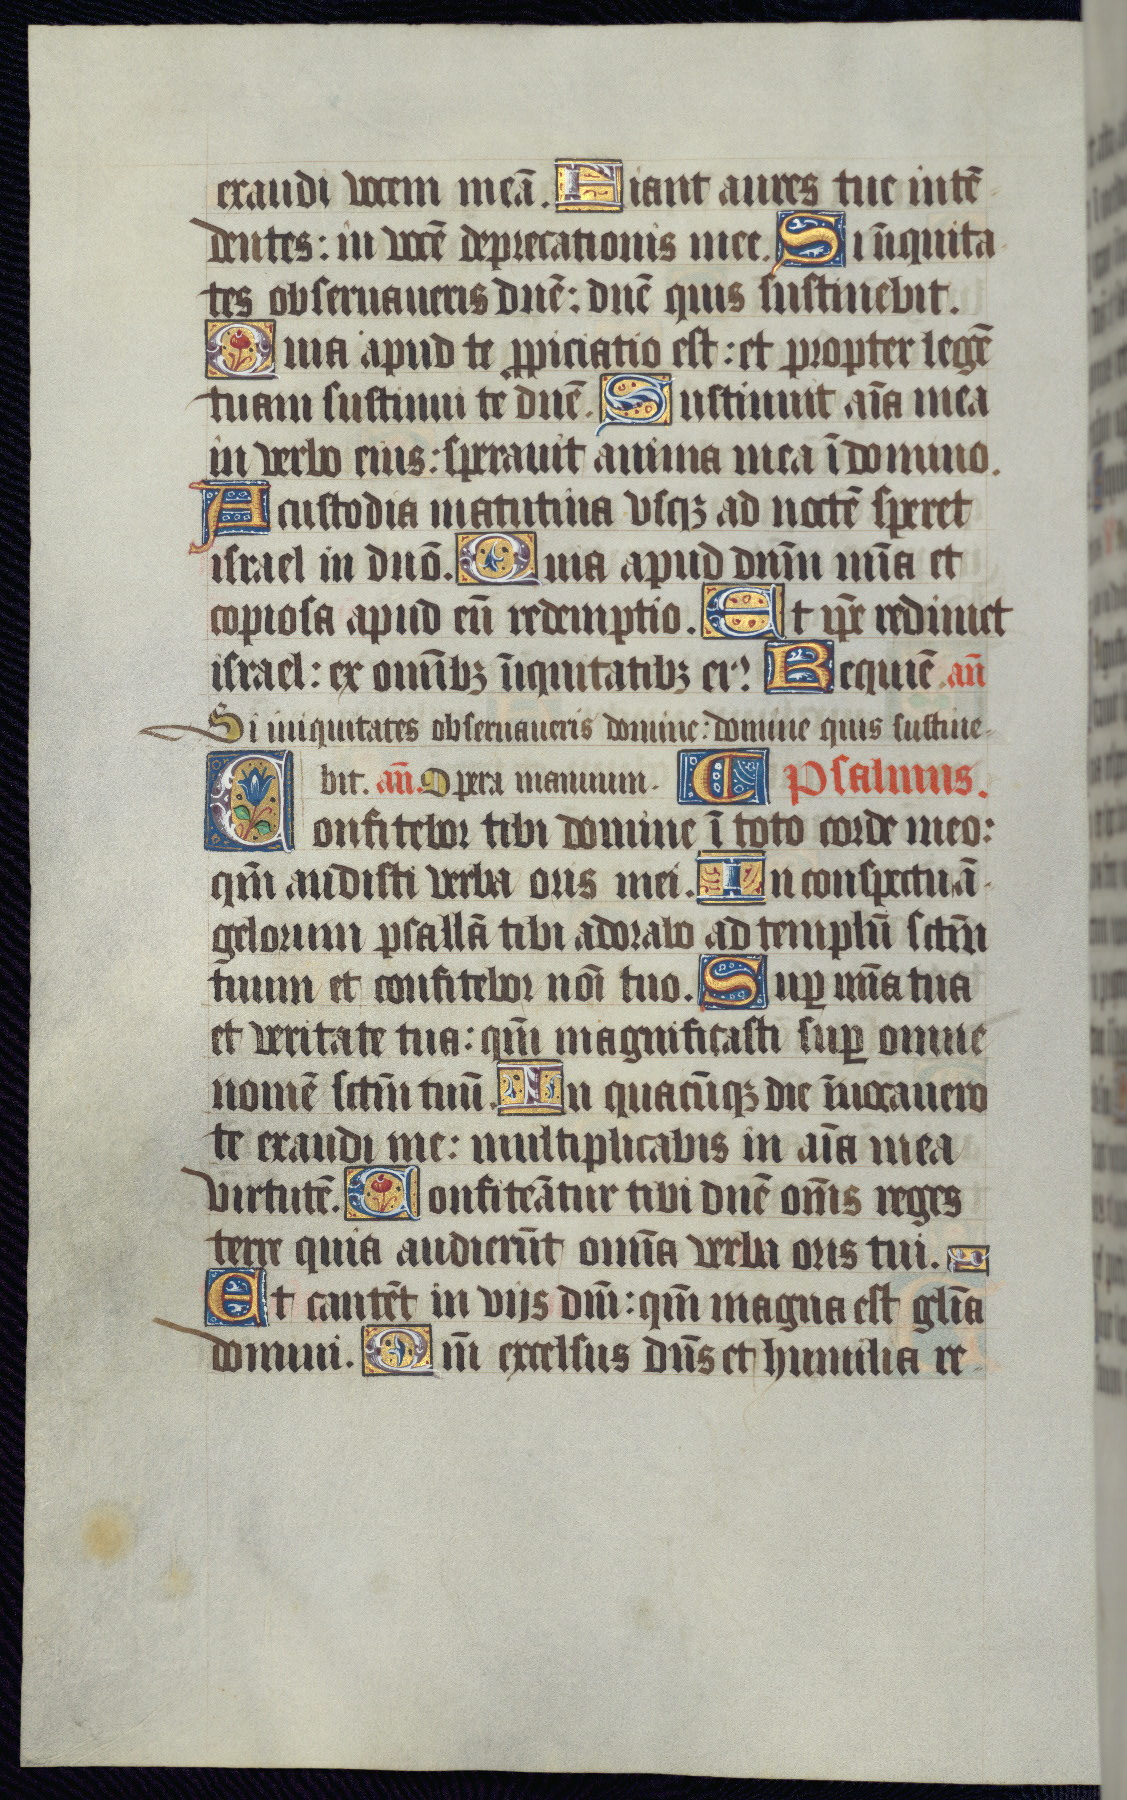 exaudi vocem meā. Fiant aures tue intē
dentes: in vocē deprecationis mee. Si īiquita
tes obseruaueris dnē: dnē quis sustinebit.
Quia apud te ꝓpiciatio est: et propter legē
tuam sustinui te dnē. Sustinuit aīa mea
in verbo eius: sperauit anima mea ī domino.
A custodia matutina vsqꝫ ad noctē speret
israel in dnō. Quia apud dnm̄ mīa et
copiosa apud eū redemptio. Et ip̄e redimet
israel: ex omībꝫ īiquitatibꝫ eiꝰ. Requiē. an̄
Si iniquitates obseruaueris domine: domine quis sustine-
bit. an̄. Opera manuum. C Psalmus.
Confitebor tibi domine ī toto corde meo:
qm̄ audisti verba oris mei. In conspectu ā
gelorum psallā tibi adorabo ad templū sctm̄
tuum et confitebor noī tuo. Suꝑ mīa tua
et veritate tua: qm̄ magnificasti suꝑ omne
nomē sctm̄ tuū. In quacūqꝫ die īuocauero
te exaudi me: multiplicabis in aīa mea
virtutē. Confiteātur tibi dnē om̄s reges
terre quia audierūt omīa verba oris tui.
Et cantēt in vijs dn̄i: qm̄ magna est glīa
domini. Qm̄ excelsus dn̄s et humilia re